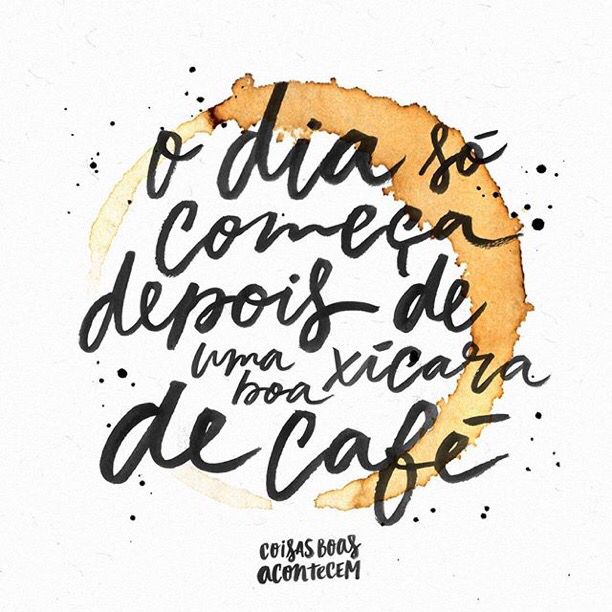 o dia só
começa
depois de
uma boa xícara
de café
coisas boas
acontecem